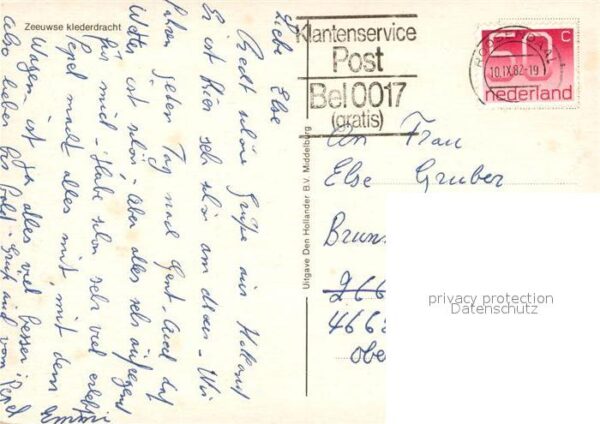 Zeeuwse klederdracht
Liebe Else
Recht schöne Grüße aus Holland
Es ist hier sehr schön am Meer - Wir
fahren jeden Tag nach Gent. Auch das
Wetter ist schön. Aber alles sehr aufregend
für mich - Habe schon sehr viel erlebt
Pepel macht alles mit, mit dem
Wagen ist ja alles viel besser.
Also lieber bis bald - Gruß auch vom Pepel
Emmi
Uitgave Den Hollander B.V. Middelburg
Klantenservice
Post
Bel 0017
(gratis)
10.IX.82-19
50 c
nederland
An Frau
Else Gruber
Brun
466
Obe
privacy protection
Datenschutz